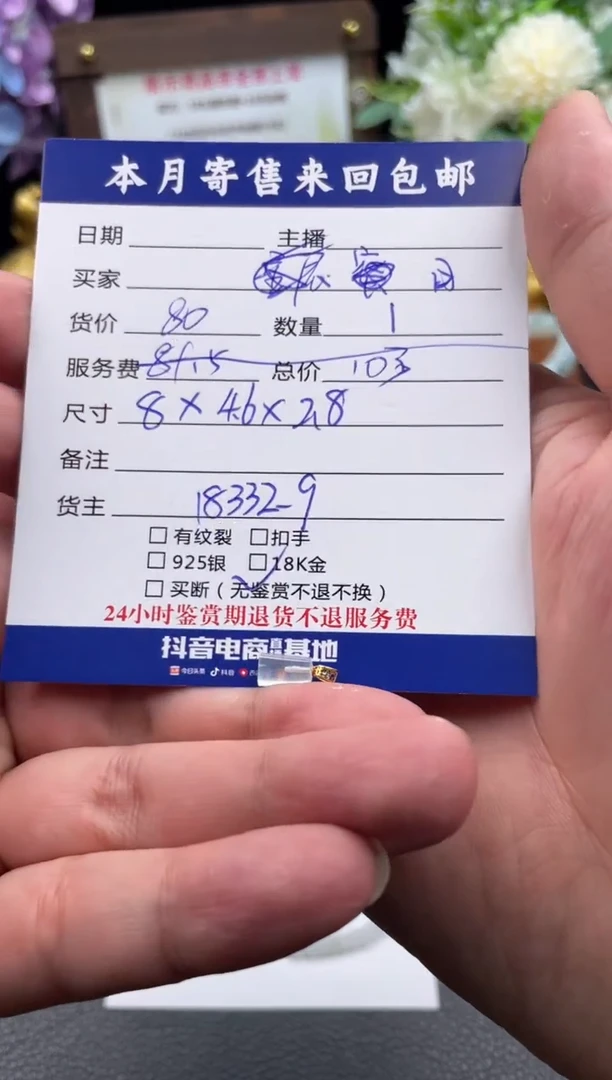 本月寄售来回包邮
日期 主播
买家 日
货价 80 数量 1
服务费 8+15 总价 103
尺寸 8×4.6×2.8
备注
货主 18332-9
□有纹裂 □扣手
□925银 □18K金
□买断（无鉴赏不退不换）
24小时鉴赏期退货不退服务费
抖音电商 基地
今日头条 抖音